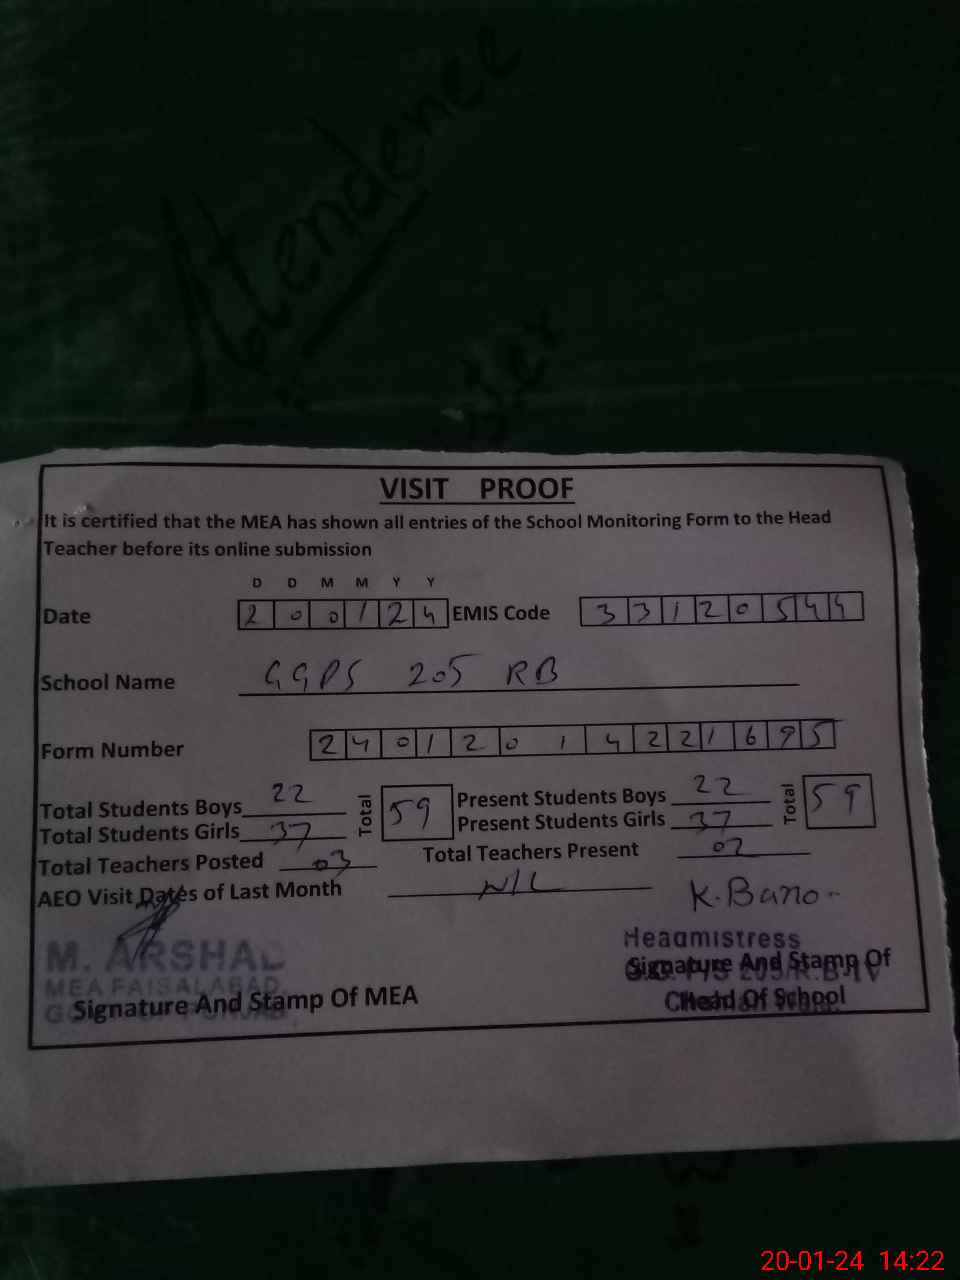 Attendence
VISIT PROOF
It is certified that the MEA has shown all entries of the School Monitoring Form to the Head
Teacher before its online submission
D D M M Y Y
Date 2 0 0 1 2 4 EMIS Code 3 3 1 2 0 5 4 4
School Name GGPS 205 RB
Form Number 2 4 0 1 2 0 1 4 2 2 1 6 9 5
Total Students Boys 22 Total 59 Present Students Boys 22 Total 59
Total Students Girls 37 Present Students Girls 37
Total Teachers Posted 03 Total Teachers Present 02
AEO Visit Dates of Last Month N/L K.Bano
M. ARSHAD Headmistress
MEA FAISALABAD.
Signature And Stamp Of MEA Signature And Stamp Of
Head Of School
20-01-24 14:22